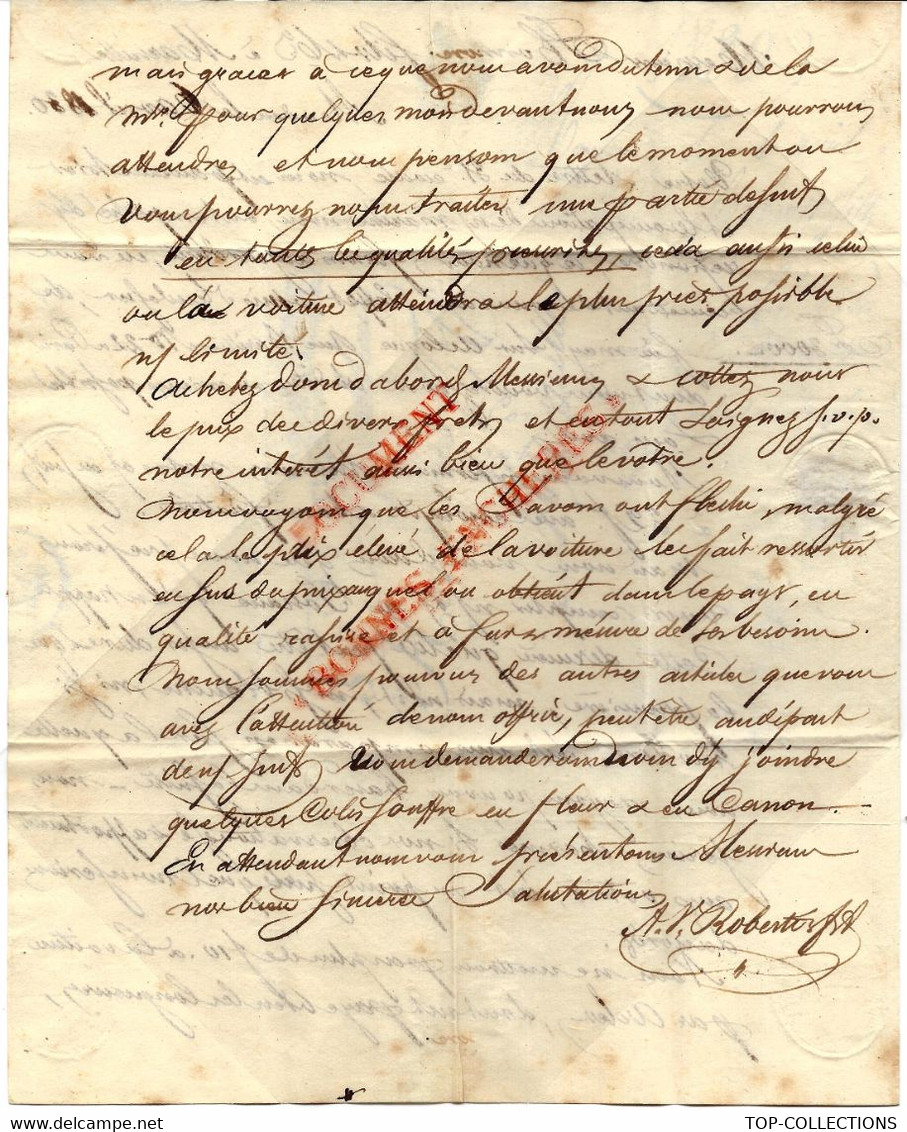 mais graces à ce que nous avons obtenu & de la
Mse pour quelques mois devant nous nous pourrons
attendre, et nous pensons que le moment ou
vous pourrez nous traiter une partie de suifs
en toutes les qualités prescrites, sera aussi celui
ou la voiture atteindra le plus près possible
n/ limite.
Achetez donc d'abord, Messieurs & cottez nous
le prix des divers frets, et en tout soignez s.v.p.
notre intérêt aussi bien que le votre.
Nous voyons que les Savons ont flechi, malgré
cela le prix élevé de la voiture les fait ressortir
en sus du prix auquel on obtient dans le pays, en
qualité rassise et à fur & mésure de ses besoins.
Nous sommes pourvus des autres articles que vous
avez l'attention de nous offrir, peut etre au départ
de n/ suifs vous demanderons nous d'y joindre
quelques Colis souffre en fleur & en Canon.
En attendant nous vous présentons Messieurs
nos bien sincères Salutations
A. Ve. Robert
DOCUMENT
"BONNES ENCHERES"
TOP-COLLECTIONS